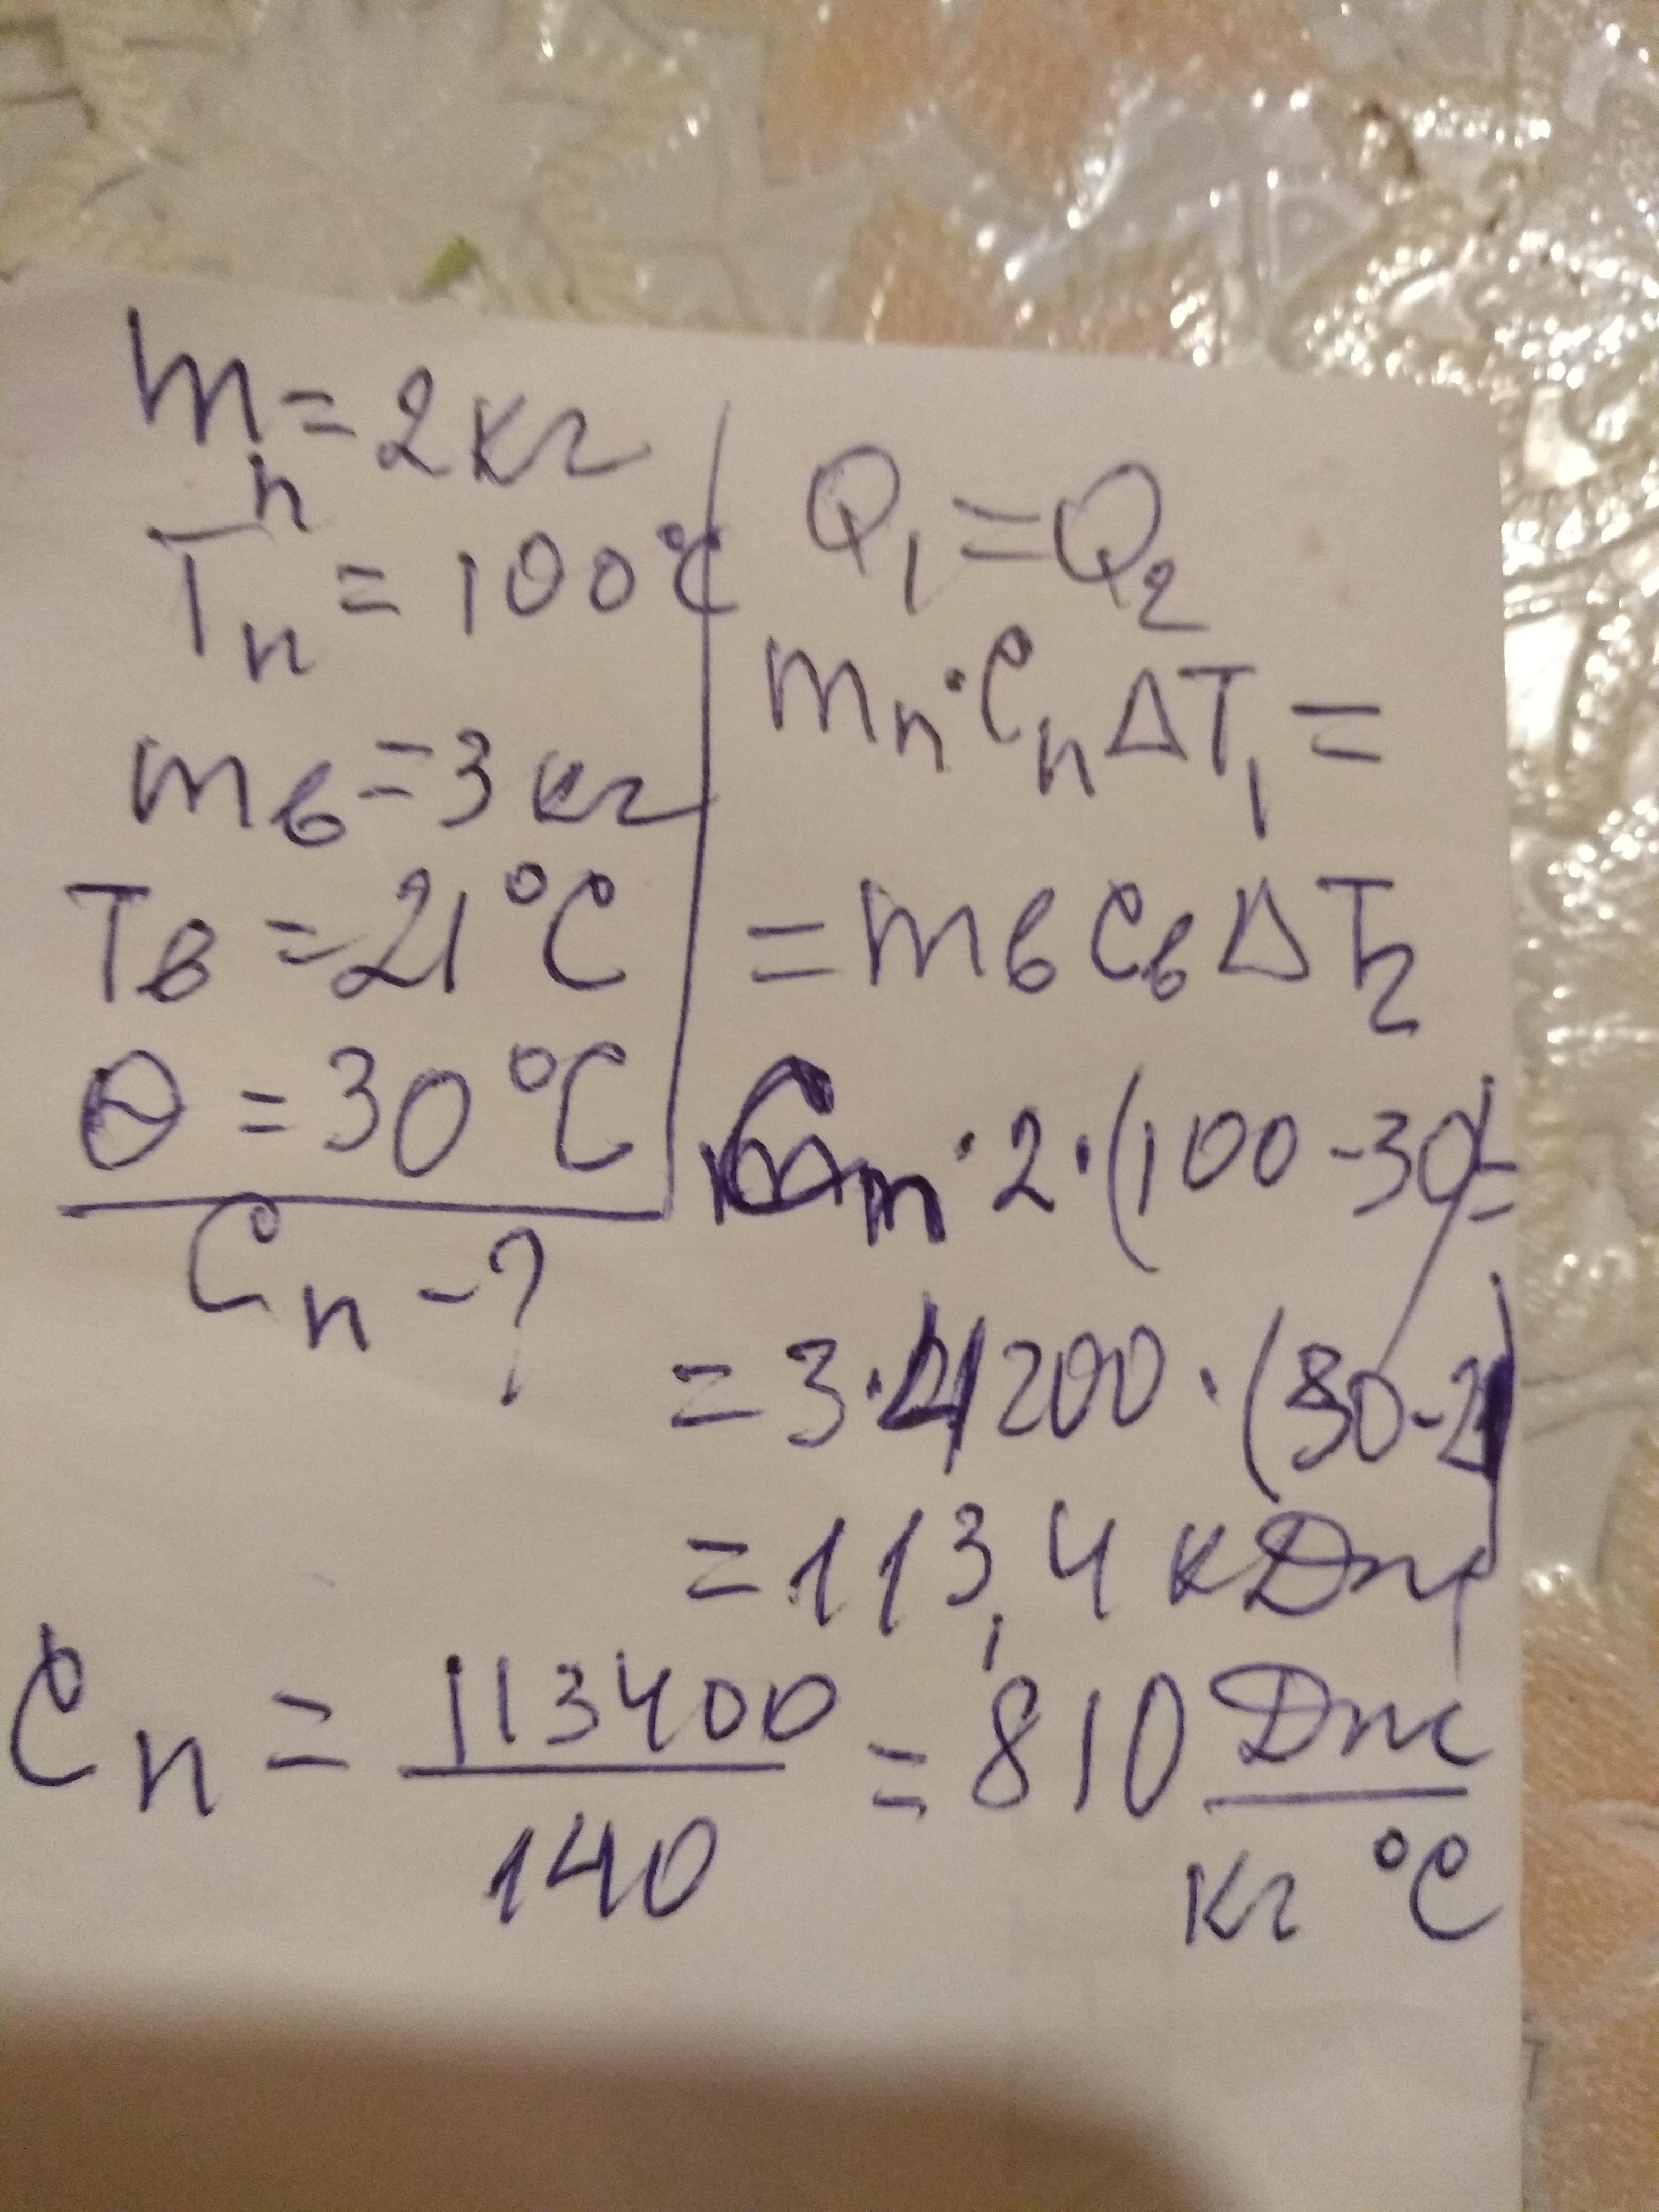 mп = 2 кг
Tп = 100 °C
mв = 3 кг
Tв = 21 °C
θ = 30 °C
Cп - ?
Q1 = Q2
mп · Cп ΔT1 =
= mв Cв ΔT2
Cm · 2 · (100 - 30) =
= 3 · 4200 · (30 - 21)
= 113,4 кДж
Cп = 113400 / 140 = 810 Дж / кг °C